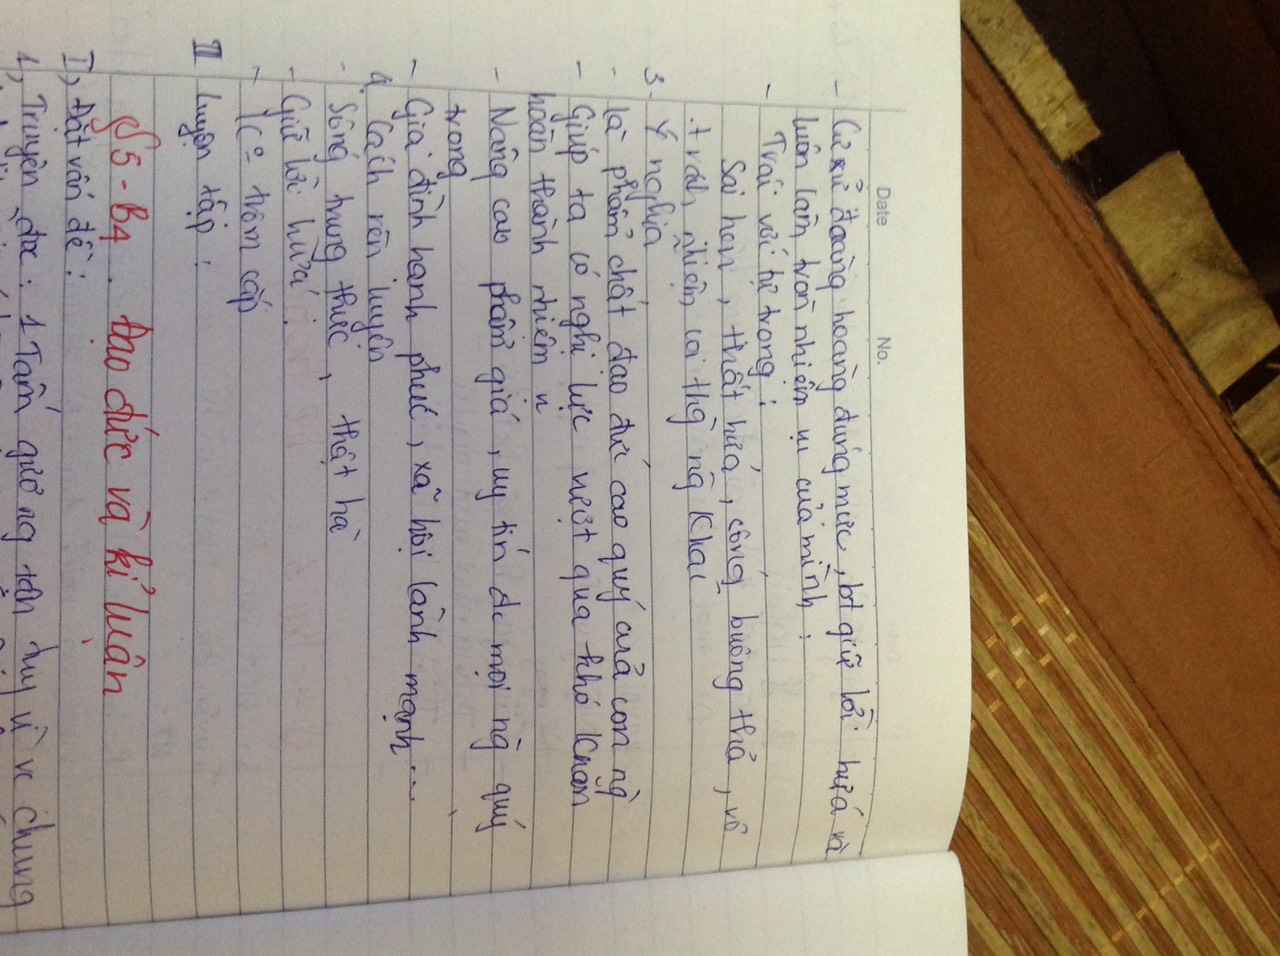 Date No.
- Cư xử đoàng hoàng đúng mức, bt giữ lời hứa và
luôn làm tròn nhiệm vụ của mình.
- Trái với tự trọng:
Sai hẹn, thất hứa, sống buông thả, vô
trách nhiệm,
3. Ý nghĩa
- là phẩm chất đạo đức cao quý của con ng
- Giúp ta có nghị lực vượt qua khó khăn
hoàn thành nhiệm v
- Nâng cao phẩm giá, uy tín đc mọi ng quý
trong
- Gia đình hạnh phúc, xã hội lành mạnh...
4. Cách rèn luyện
- Sống trung thực, thật thà
- Giữ lời hứa.
- Kº trôm cắp
II Luyện tập:
§5 - B4. Đạo đức và kỉ luận
I, Đặt vấn đề:
1, Truyện đọc: 1 Tấm gương tận tuỵ vì vc chung